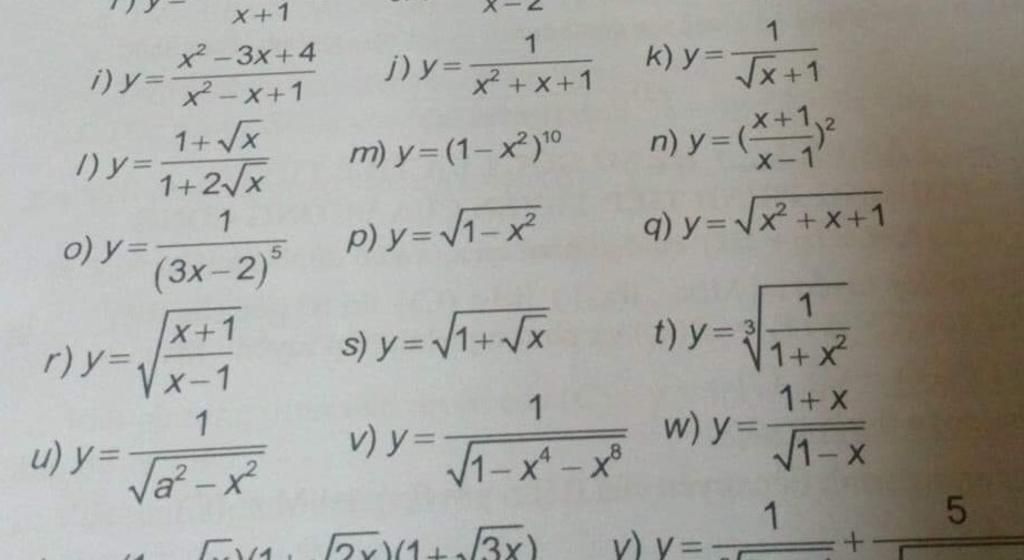 x+1 x-2
i) y = \frac{x^2-3x+4}{x^2-x+1} j) y = \frac{1}{x^2+x+1} k) y = \frac{1}{\sqrt{x}+1}
l) y = \frac{1+\sqrt{x}}{1+2\sqrt{x}} m) y = (1-x^2)^{10} n) y = (\frac{x+1}{x-1})^2
o) y = \frac{1}{(3x-2)^5} p) y = \sqrt{1-x^2} q) y = \sqrt{x^2+x+1}
r) y = \sqrt{\frac{x+1}{x-1}} s) y = \sqrt{1+\sqrt{x}} t) y = \sqrt[3]{\frac{1}{1+x^2}}
u) y = \frac{1}{\sqrt{a^2-x^2}} v) y = \frac{1}{\sqrt{1-x^4-x^8}} w) y = \frac{1+x}{\sqrt{1-x}}
\sqrt{2x})(1+\sqrt{3x}) y) y = 1 + 5